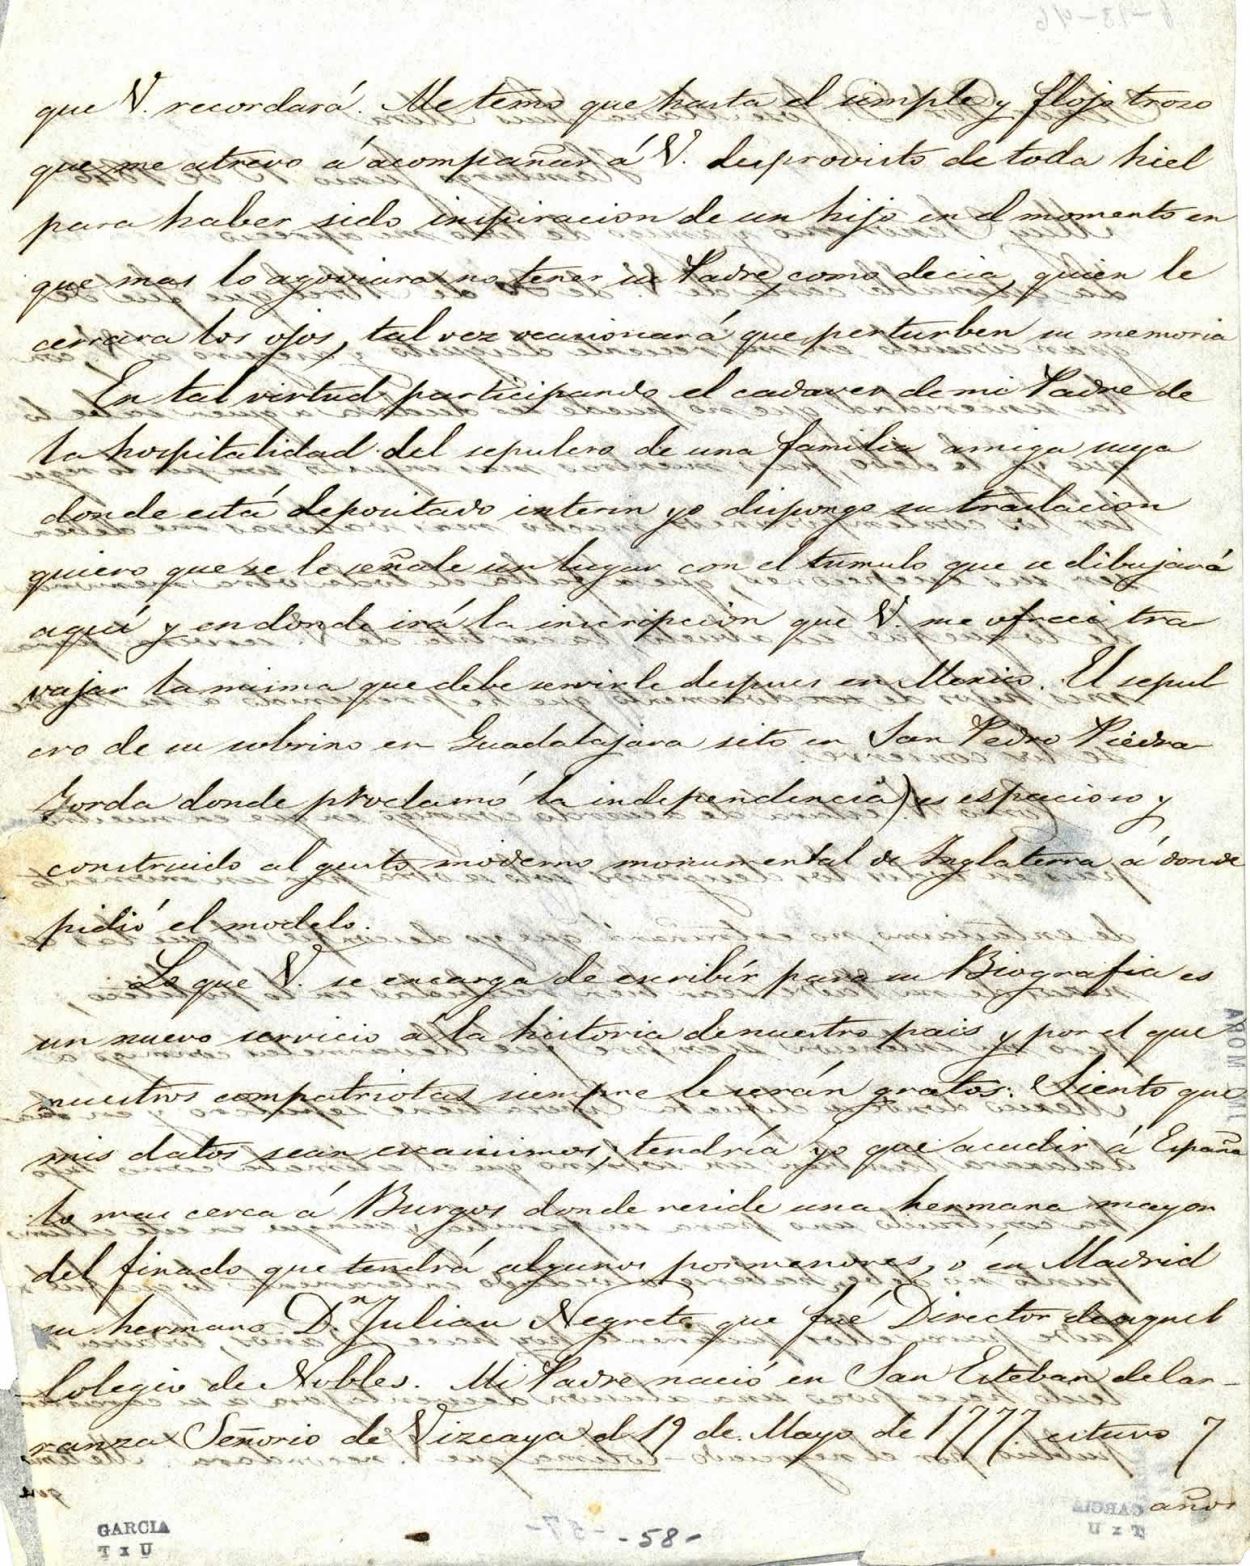 que V. recordará. Me temo que hasta el simple y flojo troso
que me atrevo á acompañar á V. desprovisto de toda hiel
para haber sido inspiracion de un hijo en el momento en
que mas lo agoviara no tener su Padre, como decia, quien le
cerrara los ojos, tal vez ocasionará que perturben su memoria
En tal virtud participando el cadaver de mi Padre de
la hospitalidad del sepulcro de una familia amiga suya
donde está depositado interin yo dispongo su traslacion
quiero que se le señale un lugar con el túmulo que se dibujará
aquí y en donde irá la inscripción que V. me ofreci tra
vajar la misma que debe servirle despues en Mexico. El sepul
cro de su sobrino en Guadalajara sito en San Pedro Piedra
Gorda donde proclamó la independencia) es espacioso y
construido al gusto moderno monumental de Inglaterra á donde
pidió el modelo.
Lo que V. se encarga de escribir para su Biografia es
un nuevo servicio á la historia de nuestro pais y por el que
nuestros compatriotas siempre le serán gratos. Siento que
mis datos sean escasisimos, tendría yo que acudir á España
lo mas cerca á Burgos donde reside una hermana mayor
del finado que tendrá algunos pormenores, ó en Madrid
su hermano Dn Julian Negrete que fué Director de aquel
Colegio de Nobles. Mi Padre nació en San Esteban de Car-
ranza Señorio de Vizcaya el 19 de Mayo de 1777 estuvo 7
años
GARCIA
-58-